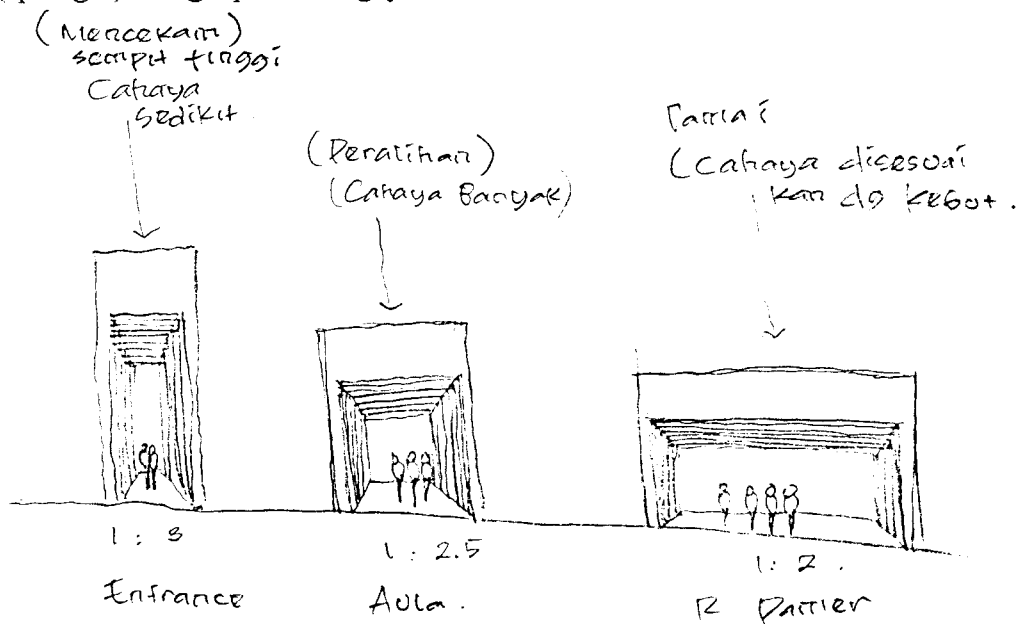 (Mencekam)
sempit tinggi
Cahaya
sedikit
(Peralihan)
(Cahaya Banyak)
Damai
(Cahaya disesuai
kan dg kebut.
1 : 3
1 : 2.5
1 : 2 .
Entrance
Aula .
R Pamer